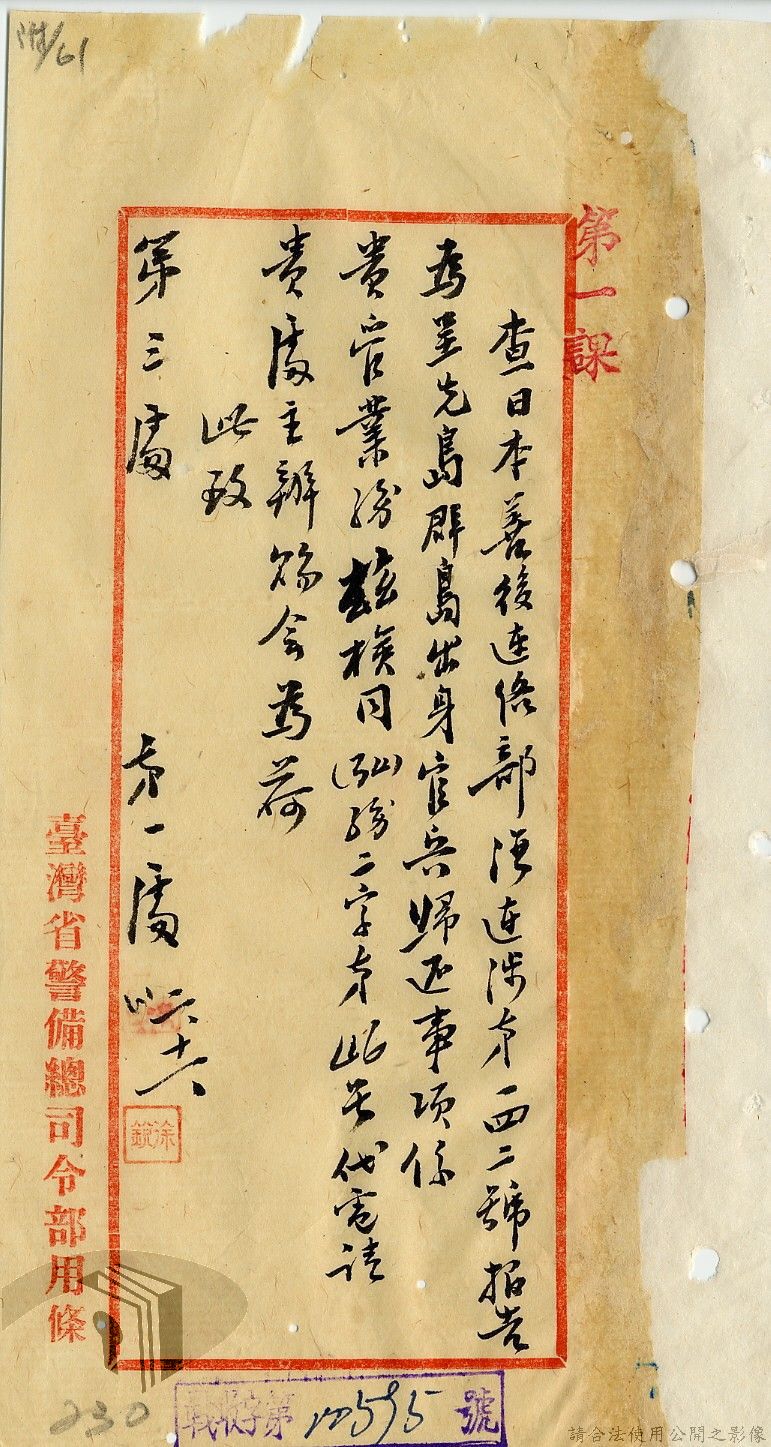 第一課
查日本善後連絡部涉連涉字第一四二號報告
為呈先島群島出身官兵歸還事項係
貴管業務茲檢同
二字第 代電請
貴處主辦 會為荷
此致
第三處
第一處
六十六
徐
臺灣省警備總司令部用條
戰收字第 號
230
請合法使用公開之影像